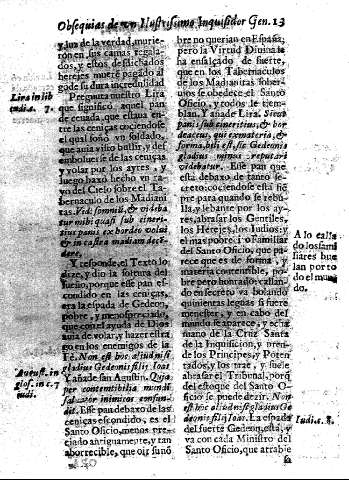 Obsequias de vn Illustrissimo Inquisidor Gen. 13
y los de la verdad, murie-
rõn en sus camas regala-
dos, y estos desdichados
herejes muere pagado al
gode su dura incredulidad
Lira in lib
iudi. c. 7.
Pregunta nuestro Lira
que significó aquel pan
de cenada, que estaua en-
tre las cenizas cociendose
el qual soñò vn soldado,
que auia visto bullir, y des
emboluerse de las ceniças
y volar por los ayres, y
luego baxó hecho vn ra-
yo del Cielo sobre el Ta-
bernaculo de los Madiani
tas. Vidi somniũ, & videba
tur mihi quasi sub cineri-
tius panis ex hordeo volui
& in castra madiam descē-
dere.
Y responde, el Texto lo
dize, y dio la soltura del
sueño, porque esse pan es-
condido en las ceniças,
era la espada de Gedeon,
pobre, y menospreciado,
que con el ayuda de Dios
auia de volar, y hazer estra
go en los enemigos de la
Fè. Non est hoc aliud nisi
gladius Gedeonis filij Ioas
August. in
glos. in c. 7
iudi.
Y añade san Agustin. Quia
per contemtibilia mundi
saluator inimicos confun-
dit. Esse pan debaxo de las
ceniças escondido, es el
Santo Oficio, menos pre-
ciado antiguamente, y tan
aborrecible, que oir su nō
bre no querian en España;
pero la Virtud Diuina le
ha ensalçado de suerte,
que en los Tabernaculos
de los Madianitas sober-
uios se obedece el Santo
Oficio, y todos le tiem-
blan. Y añade Lira. Sicut
panis sub cineritius, & hor
deaceus, qui ex materia, &
forma, vili est, sic Gedeonis
gladius minor reputari
videbatur. Esse pan que
está debaxo de tanto se-
creto, cociendose está siē
pre para quando se rebu-
lla, y leuante por los ay-
res, abrasar los Gentiles,
los Herejes, los Iudios, y
el mas pobre Familiar
del Santo Oficio, que pa-
rece que es de forma, y
materia contemptible, po-
bre, hordenando, y callan-
do en secreto va bolando
quinientas leguas si fuere
menester, y en cabo del
mundo se aparece, y echa
mano de la Cruz Santa
de la Inquisicion, y pren-
de los Principes, y Poten-
tados, y los trae, y suele
abrasar el Tribunal, por
del estoque del Santo O-
ficio se puede dezir. Non
est hoc aliud nisi gladius Ge
deonis filij Ioas. La espada
del fuerte Gedeon, esta, y
va con cada Ministro del
Santo Oficio, que arreba
A lo calla
do los fami
liares bue
lan porto
do el mun
do.
Iudi. c. 8.